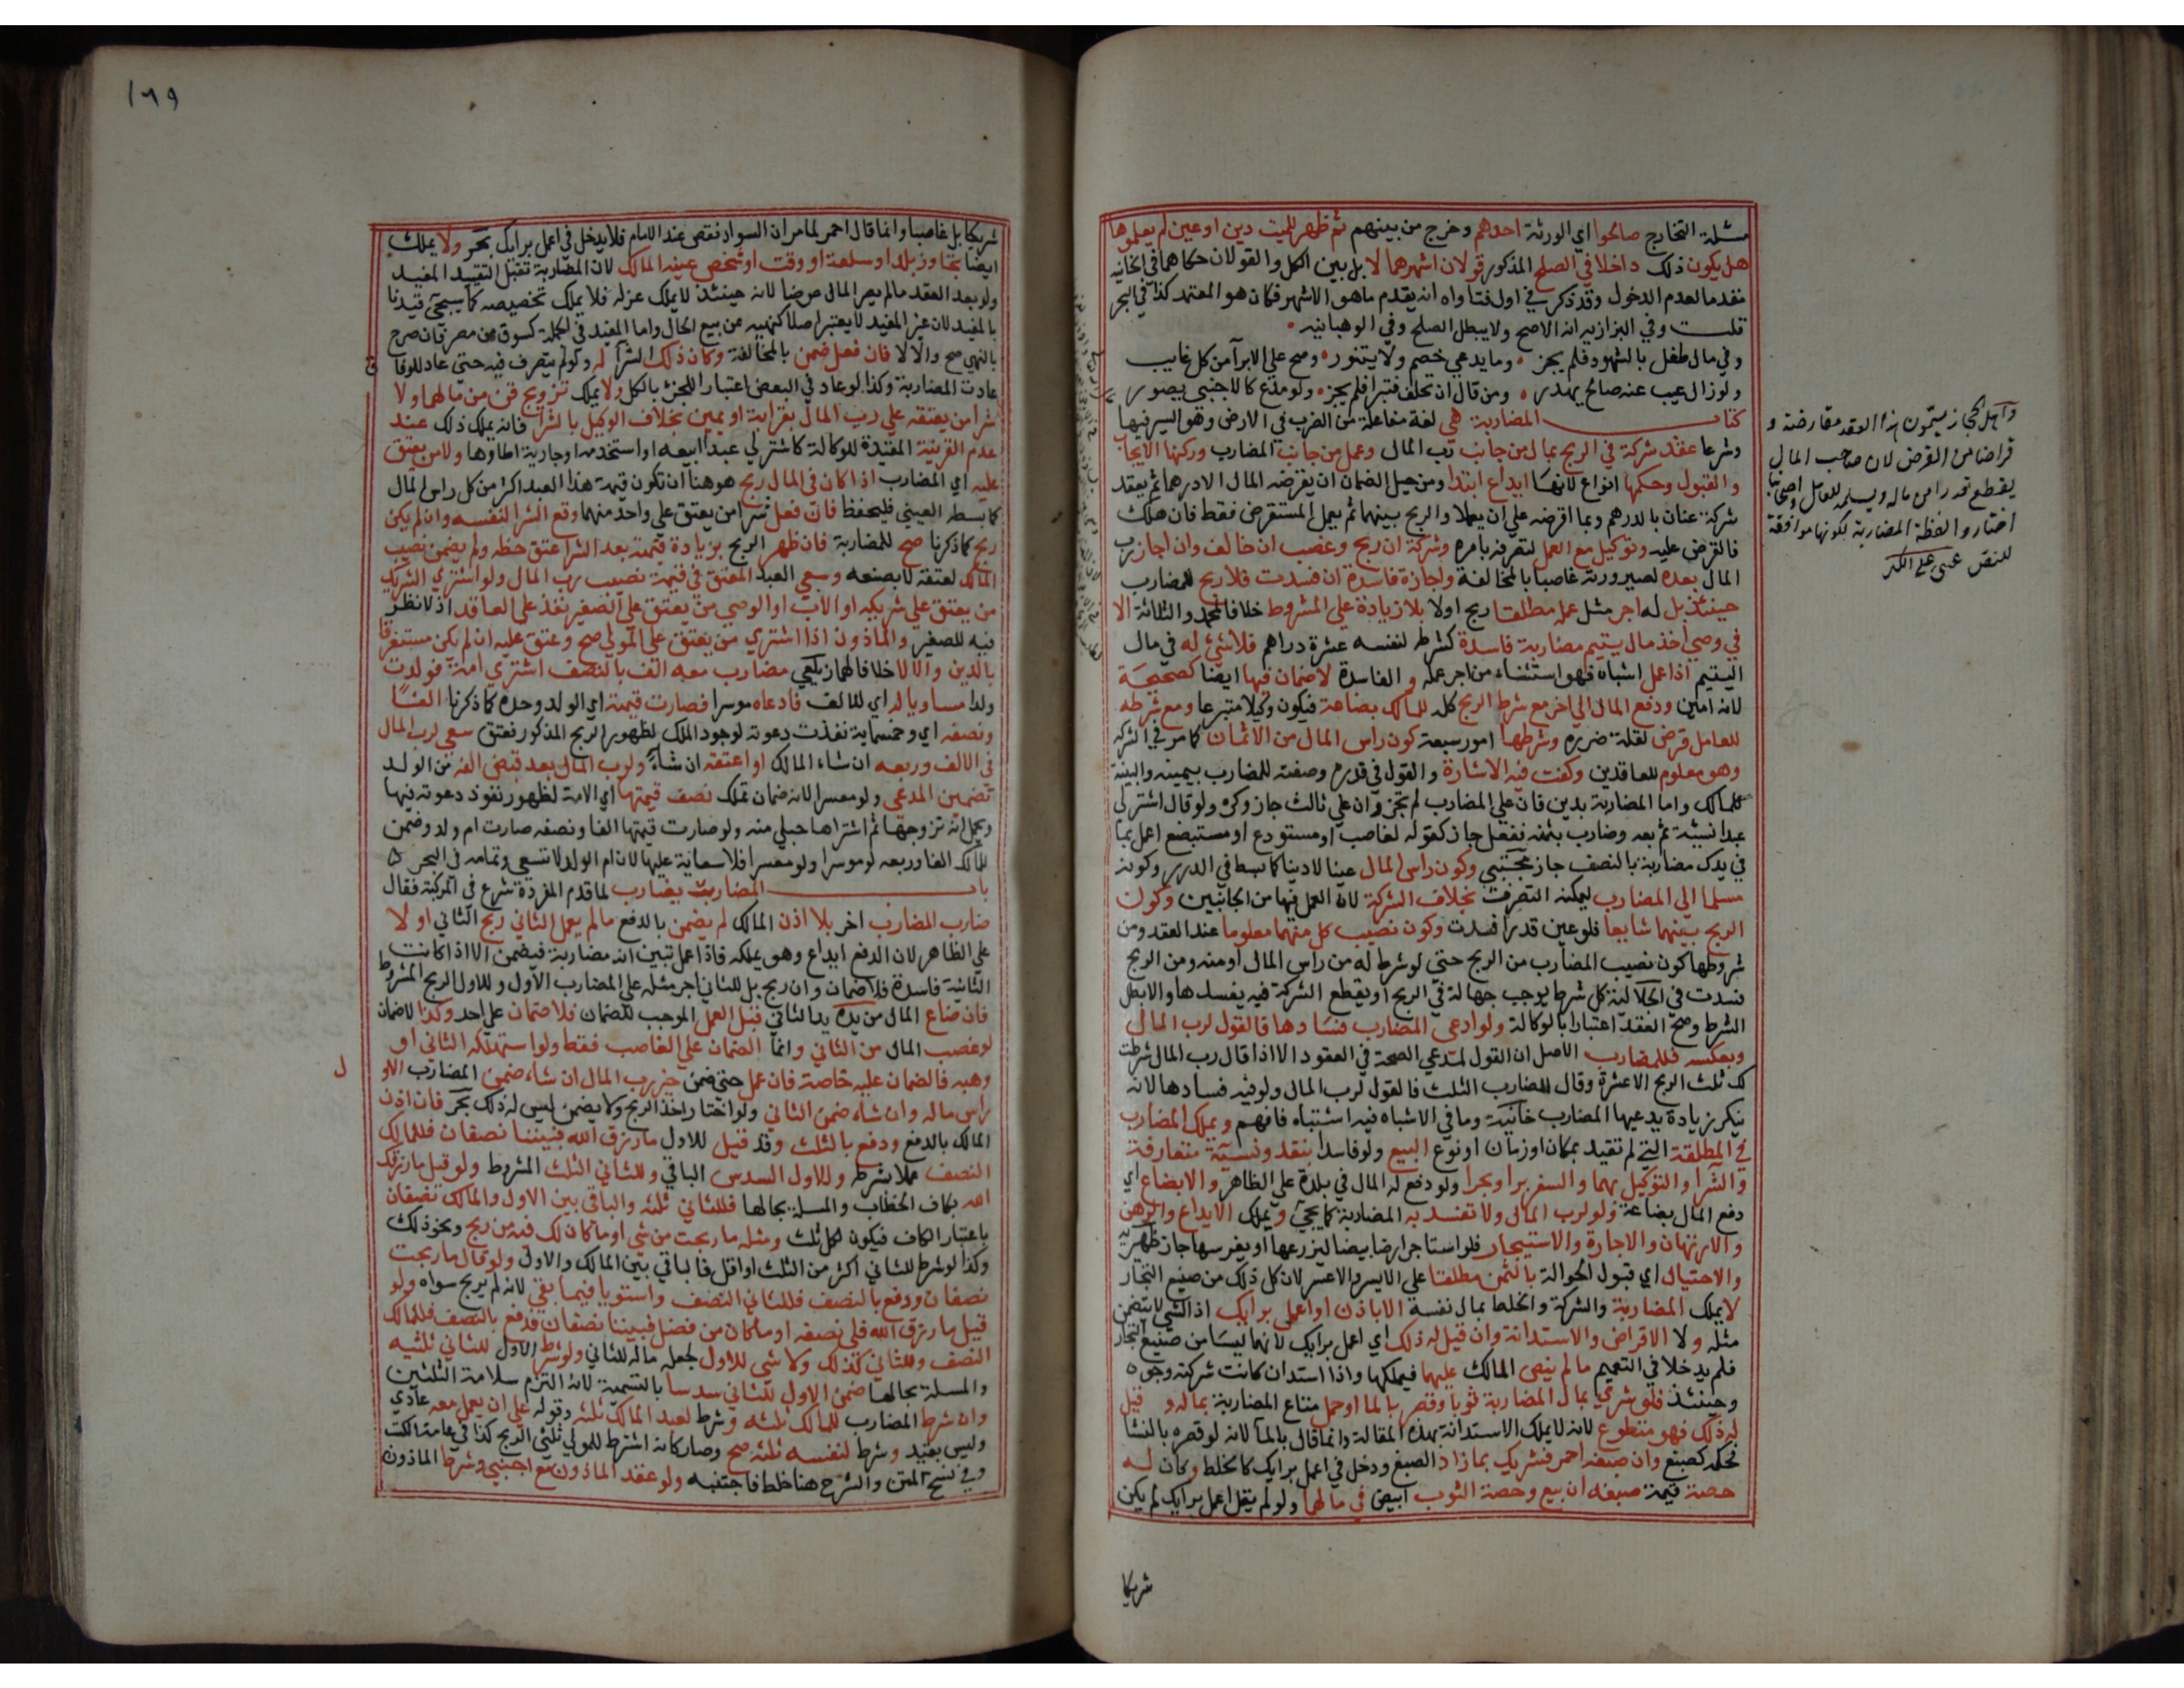 مسئلة التخارج صالحوا اي الورثة احدهم وخرج من بينهم ثم ظهر للميت دين او عين لم يعلموها
هل يكون ذلك داخلا في الصلح المذكور قولان اشهرهما لا بل بين الكل والقولان حكاهما في الخانيه
مقدما لعدم الدخول وقد ذكر في اول فتاواه انه يقدم ماهو الاشهر فكان هو المعتمد كذا في البحر
قلت وفي البزازيه انه الاصح ولا يبطل الصلح وفي الوهبانيه
وفي مال طفل بالشهود فلم يجز وما يدعي خصم ولا يتنور وصح علي الابرآ من كل غايب
ولو زال عيب عنه صالح يهدر ومن قال ان تحلف فتبرا فلم يجز ولو مدع كالاجنبي يصور
كتاب المضاربة هي لغة مفاعلة من الضرب في الارض وهو السير فيها
وشرعا عقد شركة في الربح بمال من جانب رب المال وعمل من جانب المضارب وركنها الايجاب
والقبول وحكمها انواع لانها ايداع ابتدا ومن حيل الضمان ان يقرضه المال الا درهما ثم يعقد
شركة عنان بالدرهم وبما اقرضه علي ان يعملا والربح بينهما ثم يعمل المستقرض فقط فان هلك
فالقرض عليه وتوكيل مع العمل لتصرفه بامره وشركة ان ربح وغصب ان خالف وان اجاز رب
المال بعده لصيرورته غاصبا بالمخالفة واجازة فاسدة ان فسدت فلا ربح للمضارب
حينئذ بل له اجر مثل عمله مطلقا ربح اولا بلا زيادة علي المشروط خلافا لمحمد والثلاثة الا
في وصي اخذ مال يتيم مضاربة فاسدة كشرطه لنفسه عشرة دراهم فلا شئ له في مال
اليتيم اذا عمل اشباه فهو استثناء من اجر عمله والفاسدة لا ضمان فيها ايضا كصحيحة
لانه امين ودفع المال الي اخر مع شرط الربح كله للمالك بضاعة فيكون وكيلا متبرعا ومع شرطه
للعامل قرض لقلة ضرره وشرطها امور سبعة كون راس المال من الاثمان كما مر في الشركة
وهو معلوم للعاقدين وكفت فيه الاشارة والقول في قدره وصفته للمضارب بيمينه والبينة
للمالك واما المضاربة بدين فان علي المضارب لم تجز وان علي ثالث جاز وكره ولو قال اشتر لي
عبدا نسيئة ثم بعه وضارب بثمنه ففعل جاز كقوله لغاصب او مستودع او مستبضع اعمل بما
في يدك مضاربة بالنصف جاز مجتبي وكون راس المال عينا لا دينا كما بسط في الدرر وكونه
مسلما الي المضارب ليمكنه التصرف بخلاف الشركة لان العمل فيها من الجانبين وكون
الربح بينهما شايعا فلو عين قدرا فسدت وكون نصيب كل منهما معلوما عند العقد ومن
شروطها كون نصيب المضارب من الربح حتي لو شرط له من راس المال او منه ومن الربح
فسدت في الجلالية كل شرط يوجب جهالة في الربح او يقطع الشركة فيه يفسدها والا بطل
الشرط وصح العقد اعتبارا بالوكالة ولو ادعي المضارب فسادها فالقول لرب المال
وبعكسه فللمضارب الاصل ان القول لمدعي الصحة في العقود الا اذا قال رب المال شرطت
لك ثلث الربح الا عشرة وقال المضارب الثلث فالقول لرب المال ولو فيه فسادها لانه
ينكر زيادة يدعيها المضارب خانية وما في الاشباه فيه اشتباه فافهم ويملك المضارب
في المطلقة التي لم تقيد بمكان او زمان او نوع البيع ولو فاسدا بنقد ونسيئة متعارفة
والشرا والتوكيل بهما والسفر برا وبحرا ولو دفع له المال في بلدة علي الظاهر والابضاع اي
دفع المال بضاعة ولو لرب المال ولا تفسد به المضاربة كما يجئ ويملك الايداع والرهن
والارتهان والاجارة والاستيجار فلو استاجر ارضا بيضا ليزرعها او يغرسها جاز ظهيريه
والاحتيال اي قبول الحوالة بالثمن مطلقا علي الايسر والاعسر لان كل ذلك من صنيع التجار
لا يملك المضاربة والشركة والخلط بمال نفسه الا باذن او اعمل برايك اذ الشي لا يتضمن
مثله ولا الاقراض والاستدانة وان قيل له ذلك اي اعمل برايك لانهما ليسا من صنيع التجار
فلم يدخلا في التعميم ما لم ينص المالك عليهما فيملكها واذا استدان كانت شركة وجوه
وحينئذ فلو شري بمال المضاربة ثوبا وقصر بالما او حمل متاع المضاربة بماله وقيل
له ذلك فهو متطوع لانه لا يملك الاستدانة بهذه المقالة وانما قال بالمآ لانه لو قصره بالنشا
فحكمه كصبغ وان صبغه احمر فشريك بما زاد الصبغ ودخل في اعمل برايك كالخلط وكان له
حصة قيمة صبغه ان بيع وحصة الثوب ابيض في مالها ولو لم يقل اعمل برايك لم يكن
شريكا
واهل الحجاز يسمون هذا العقد مقارضة و
قراضا من القرض لان صاحب المال
يقطع قدرا من ماله ويسلمه للعامل واصحابنا
اختاروا لفظة المضاربة لكونها موافقة
للنص
١٦٩
شريكا بل غاصبا وانما قال احمر لما مر ان السواد نقص عند الامام فلا يدخل في اعمل برايك بحر ولا يملك
ايضا تجاوز بلد او سلعة او وقت او شخص عينه المالك لان المضاربة تقبل التقييد المفيد
ولو بعد العقد مالم يصر المال عرضا لانه حينئذ لا يملك عزله فلا يملك تخصيصه كما سيجئ قيدنا
بالمفيد لان غير المفيد لا يعتبر اصلا كنهيه عن بيع الحال واما المفيد في الجملة كسوق من مصر فان صرح
بالنهي صح والا لا فان فعل ضمن بالمخالفة وكان ذلك الشرآ له ولو لم يتصرف فيه حتي عاد للوفاق
عادت المضاربة وكذا لو عاد في البعض اعتبارا للجزئ بالكل ولا يملك تزويج قن من مالها ولا
شرا من يعتقه علي رب المال بقرابة او يمين بخلاف الوكيل بالشرا فانه يملك ذلك عند
عدم القرينة المقيدة للوكالة كاشتر لي عبدا ابيعه او استخدمه او جارية اطاوها ولا من يعتق
عليه اي المضارب اذا كان في المال ربح هو هنا ان تكون قيمة هذا العبد اكثر من كل راس المال
كما بسطه العيني فليحفظ فان فعل شرا من يعتق علي واحد منهما وقع الشرا لنفسه وان لم يكن
ربح كما ذكرنا صح للمضاربة فان ظهر الربح بزيادة قيمته بعد الشرا عتق حظه ولم يضمن نصيب
المالك لعتقه لا بصنعه وسعي العبد المعتق في قيمة نصيب رب المال ولو اشتري الشريك
من يعتق علي شريكه او الاب او الوصي من يعتق علي الصغير نفذ علي العاقد اذ لا نظر
فيه للصغير والماذون اذا اشتري من يعتق علي المولي صح وعتق عليه ان لم يكن مستغرقا
بالدين والا لا خلافا لهما زيلعي مضارب معه الف بالنصف اشتري امة فولدت
ولدا مساويا له اي للالف فادعاه موسرا فصارت قيمته اي الولد وحده كما ذكرنا الفا
ونصفه اي وخمسماية نفذت دعوته لوجود الملك لظهور الربح المذكور فعتق سعي لرب المال
في الالف وربعه ان شاء المالك او اعتقه ان شآء ولرب المال بعد قبض الفه من الولد
تضمين المدعي ولو معسرا لانه ضمان تملك نصف قيمتها اي الامة لظهور نفوذ دعوته فيها
وتحمل انه تزوجها ثم اشتراها حبلي منه ولو صارت قيمتها الفا ونصفه صارت ام ولد وضمن
للمالك الفا وربعه لو موسرا ولو معسرا فلا سعاية عليها لان ام الولد لا تسعي وتمامه في البحر
باب المضارب يضارب لما قدم المفردة شرع في المركبة فقال
ضارب المضارب اخر بلا اذن المالك لم يضمن بالدفع مالم يعمل الثاني ربح الثاني او لا
علي الظاهر لان الدفع ايداع وهو يملكه فاذا عمل تبين انه مضاربة فيضمن الا اذا كانت
الثانية فاسدة فلا ضمان وان ربح بل للثاني اجر مثله علي المضارب الاول وللاول الربح المشروط
فان ضاع المال من يده يد الثاني قبل العمل الموجب للضمان فلا ضمان علي احد وكذا لا ضمان
لو غصب المال من الثاني وانما الضمان علي الغاصب فقط ولو استهلكه الثاني او
وهبه فالضمان عليه خاصة فان عمل حتي ضمن خير رب المال ان شاء ضمن المضارب الاو
ل
راس ماله وان شاء ضمن الثاني ولو اختار اخذ الربح ولا يضمن ليس له ذلك بحر فان اذن
المالك بالدفع ودفع بالثلث وقد قيل للاول مارزق الله فبيننا نصفان فللمالك
النصف عملا بشرطه وللاول السدس الباقي وللثاني الثلث المشروط ولو قيل مارزقك
الله بكاف الخطاب والمسلة بحالها فللثاني ثلثه والباقي بين الاول والمالك نصفان
باعتبار الكاف فيكون لكل ثلث ومثله ما ربحت من شي او ما كان لك فيه من ربح ونحو ذلك
وكذا لو شرط للثاني اكثر من الثلث او اقل فالباقي بين المالك والاول ولو قال ما ربحت
نصفان ودفع بالنصف فللثاني النصف واستويا فيما بقي لانه لم يربح سواه ولو
قيل ما رزق الله فلي نصفه او ما كان من فضل فبيننا نصفان فدفع بالنصف فللمالك
النصف وللثاني كذلك ولا شي للاول لجعله ماله للثاني ولو شرط الاول للثاني ثلثيه
والمسلة بحالها ضمن الاول للثاني سدسا بالتسمية لانه التزم سلامة الثلثين
وان شرط المضارب للمالك ثلثه وشرط لعبد المالك ثلثه وقوله علي ان يعمل معه عادي
وليس بقيد وشرط لنفسه ثلثه صح وصار كانه اشترط للمولي ثلثي الربح كذا في عامة الكتب
وفي نسخ المتن والشرح هنا خلط فاجتنبه ولو عقد الماذون مع اجنبي وشرط الماذون